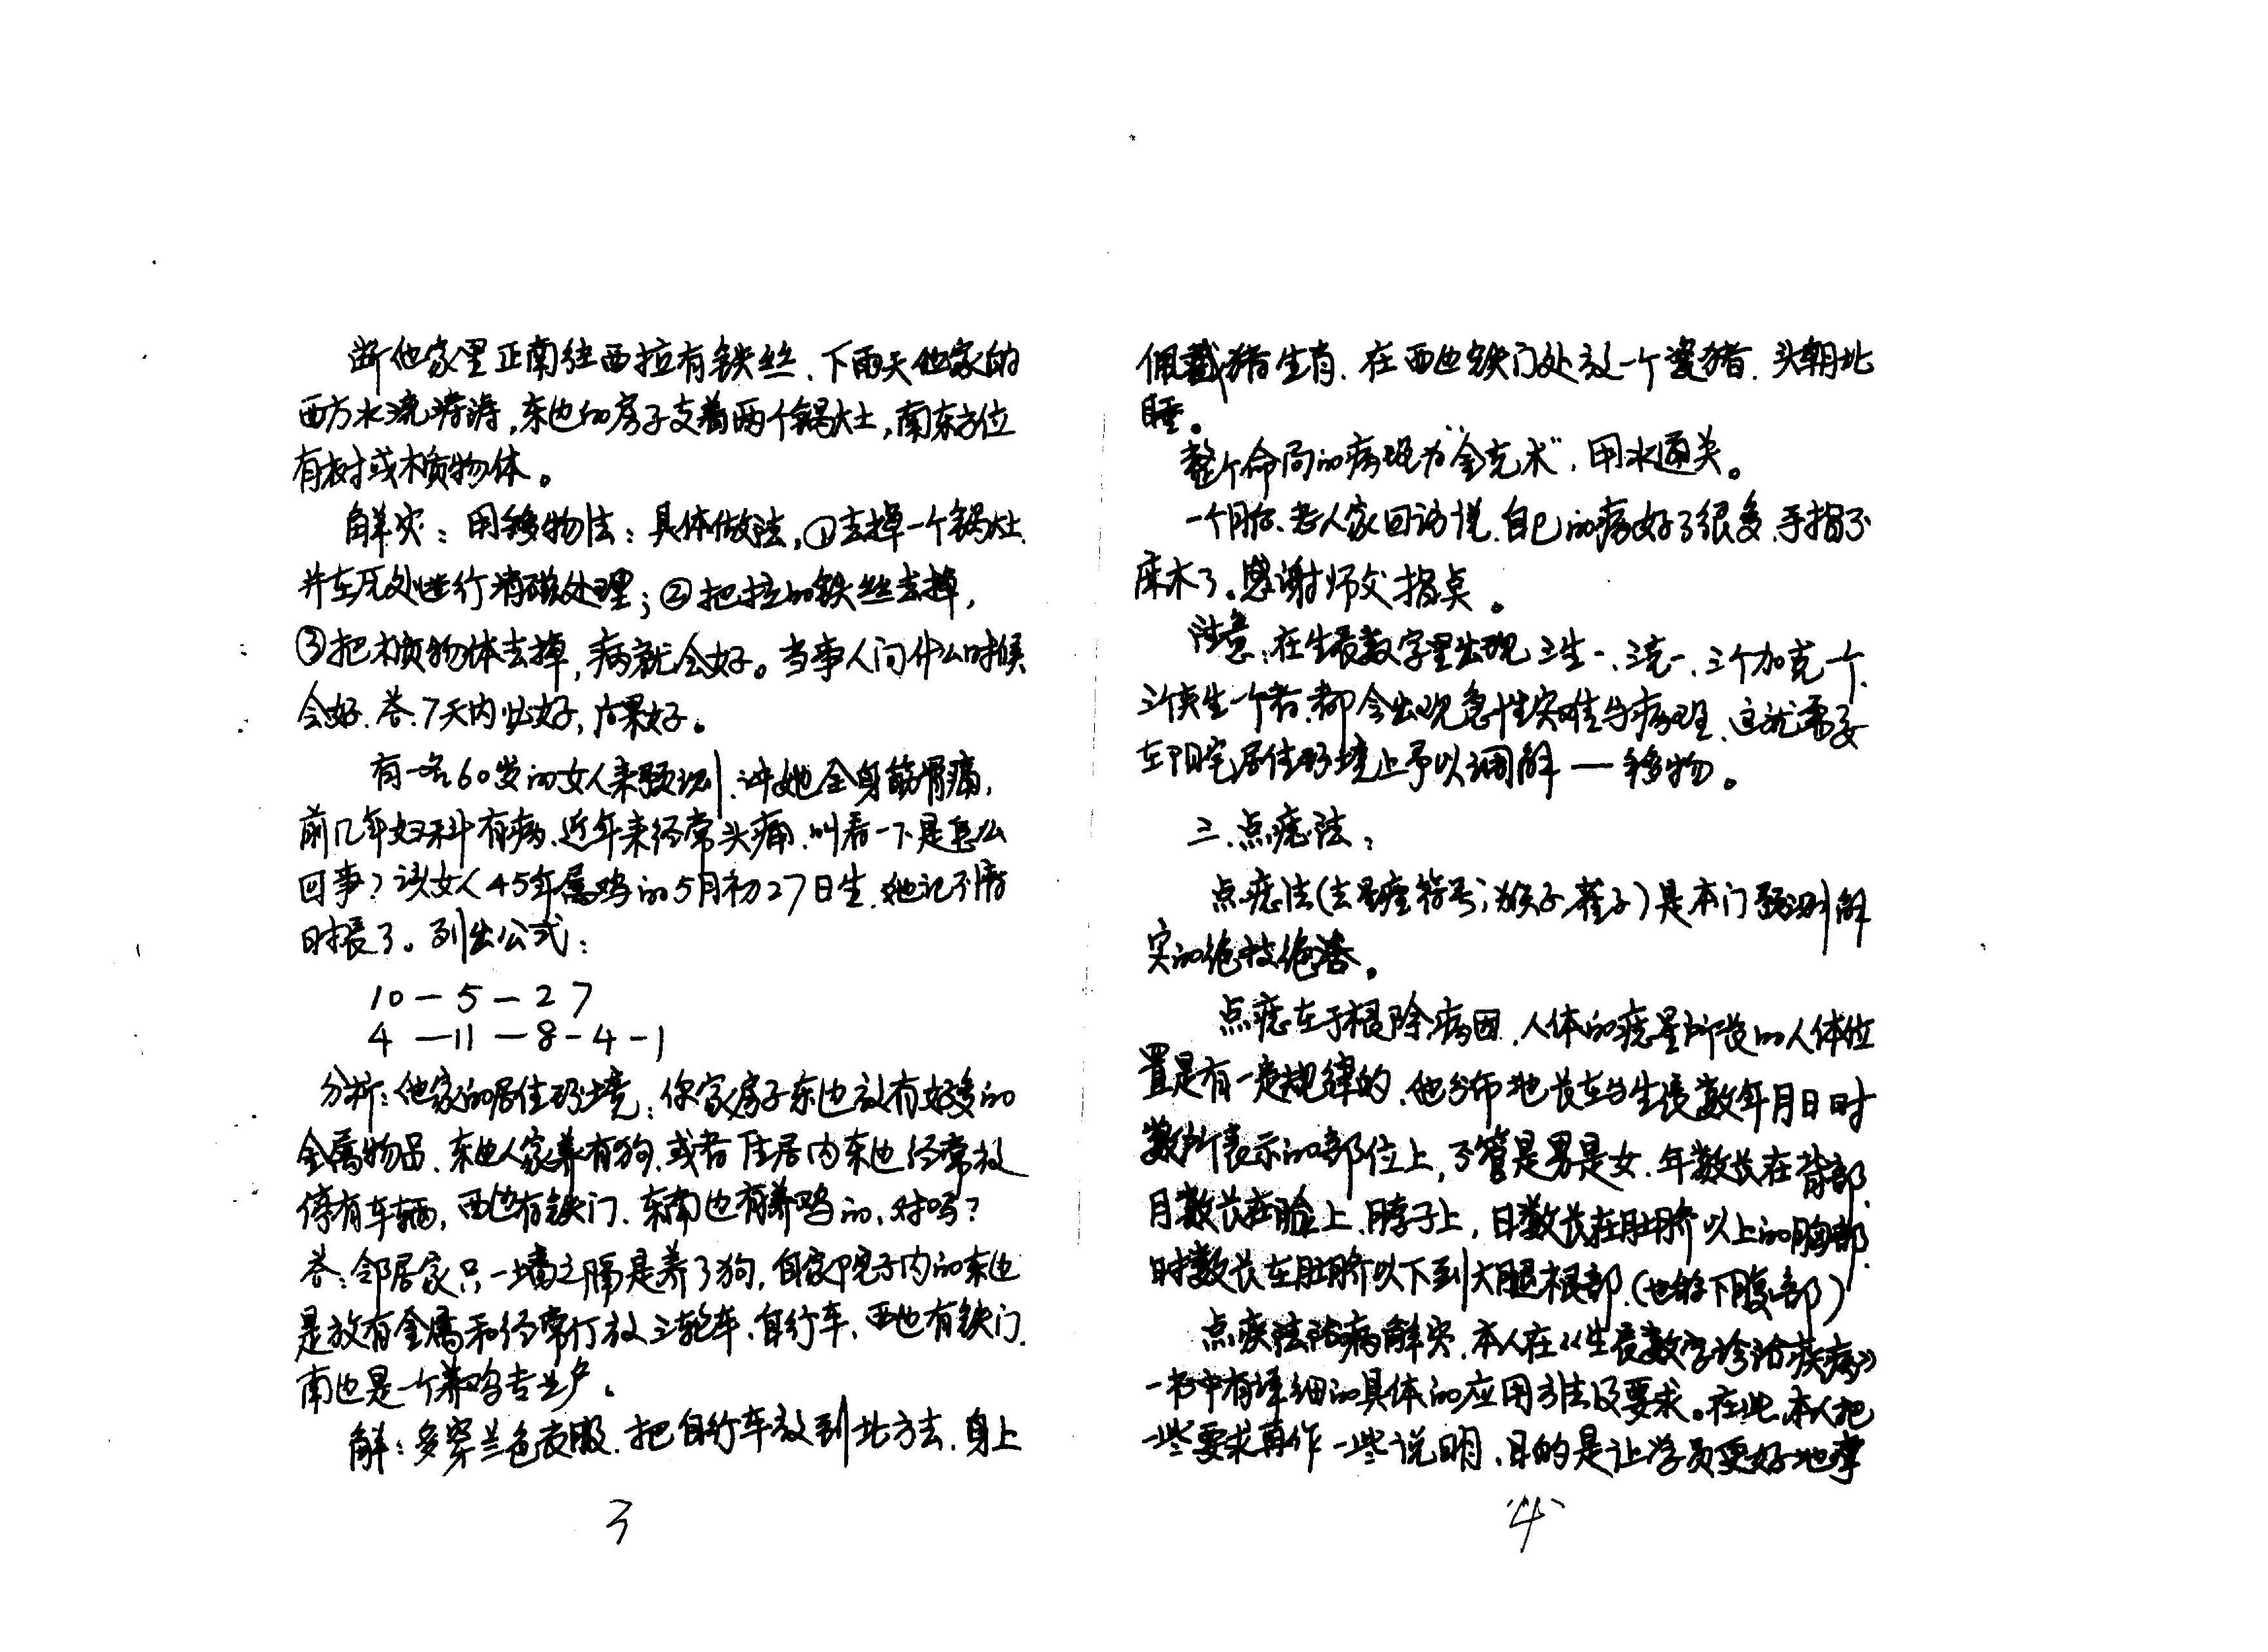 断他家里正南往西拉有铁丝、下雨天他家的
西方水流哗哗,东边的房子支着两个锅灶,南东方位
有树或木质物体。
解灾:用移物法:具体做法,①去掉一个锅灶
并在灰处进行消磁处理;②把拉的铁丝去掉,
③把木质物体去掉,病就会好。当事人问什么时候
会好.答.7天内必好,后果好。
有一名60岁的女人来预测.讲她全身筋骨痛,
前几年妇科有病.近年来经常头痛.叫看一下是怎么
回事?该女人45年属鸡的5月初27日生.她记不清
时辰了。列出公式:
10—5—27
4—11—8-4-1
分析:他家的居住环境:你家房子东边放有好多的
金属物品、东边人家养有狗、或者住居内东边经常放
停有车辆,西边有铁门、东南边有养鸡的、对吗?
答:邻居家只一墙之隔是养了狗,自家院子内的东边
是放有金属和经常停放三轮车、自行车、西边有铁门.
南边是一个养鸡专业户。
解:多穿兰色衣服.把自行车放到北方去.身上
3
佩戴猪生肖.在西边铁门处放一个瓷猪.头朝北
睡。
整个命局的病现为“金克木”,用水通关。
一个月后、老人家回访说.自己的病好了很多.手指不
麻木了。感谢师父指点。
注意:在生辰数字里出现三生一、三克一、三个加克一个、
三个夹生一个者.都会出现急性灾难与病难.这就需要
在阳宅居住环境上予以调解—移物。
三.点痣法:
点痣法(去黑痣符号;猴子,雀子)是本门预测解
灾的绝技绝活。
点痣在于根除病因.人体的痣星所设的人体位
置是有一定规律的.他分布地长在与生辰数年月日时
数所表示的部位上,不管是男是女.年数长在背部.
月数长在脸上、脖子上,日数长在肚脐以上的胸部.
时数长在肚脐以下到大腿根部.(也称下腹部)
点痣法治病解灾.本人在《生辰数字诊治疾病》
一书中有详细的具体的应用方法及要求。在此,本人把
一些要求再作一些说明、目的是让学员更好地掌
4